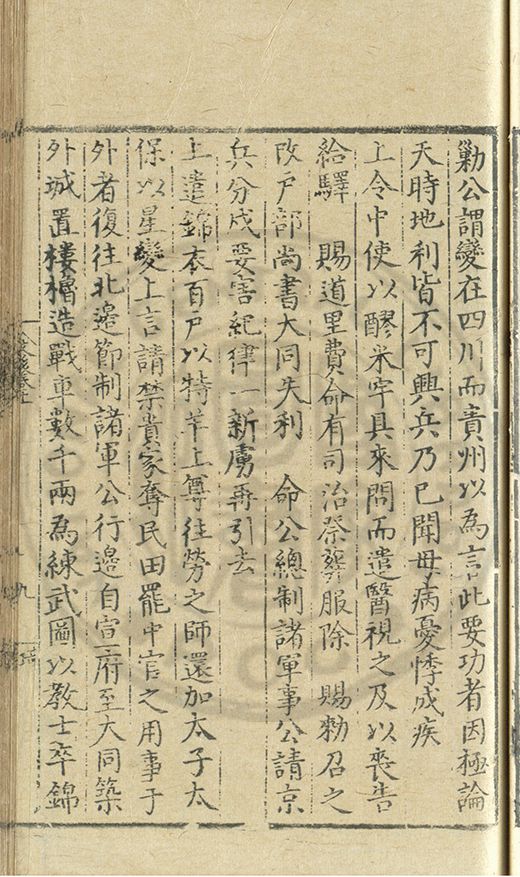 勦公謂變在四川而貴州以為言此要功者因極論
天時地利皆不可興兵乃已聞毋病憂悸成疾
上令中使以醪米牢具來問而遣醫視之及以喪告
給驛　賜道里費命有司治祭葬服除　賜勑召之
改戶部尚書大同失利　命公總制諸軍事公請京
兵分戍要害紀律一新虜再引去
上遣錦衣百戶以特羊上尊往勞之師還加太子太
保以星變上言請禁貴家奪民田罷中官之用事于
外者復往北邉節制諸軍公行邉自宣府至大同築
外城置樓櫓造戰車數千兩為練武圖以教士卒錦
九